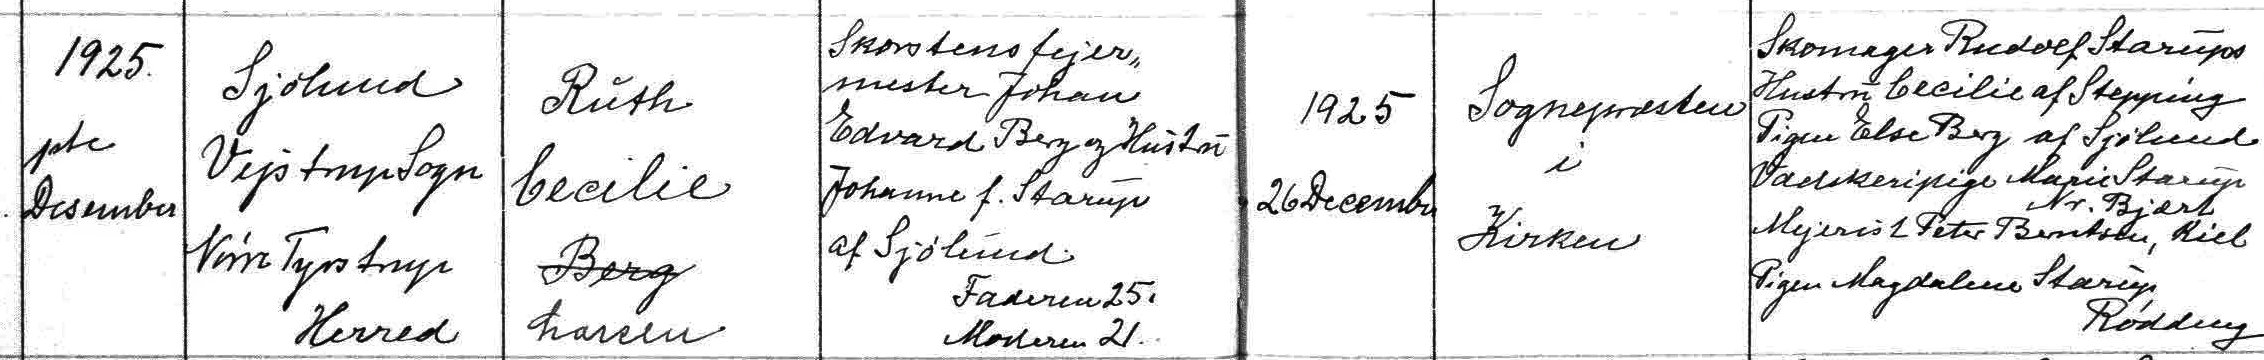 1925.
pte
Desember
Sjölund
Vejstrup Sogn
Nörre Tyrstrup
Herred
Ruth
Cecilie
Berg
Larsen
Skorstensfejer„
mester Johan
Edvard Berg og Hustru
Johanne f. Starup
af Sjölund.
Faderen 25.
Moderen 21.
1925
26 December
Sognepræsten
i
Kirken
Skomager Rudolf Starups
Hustru Cecilie af Stepping
Pigen Else Berg af Sjölund
Vædskeripige Marie Starup
Nr. Bjært
Mejerist Peter Berntsen, Kiel
Pigen Magdalene Starup,
Rödding